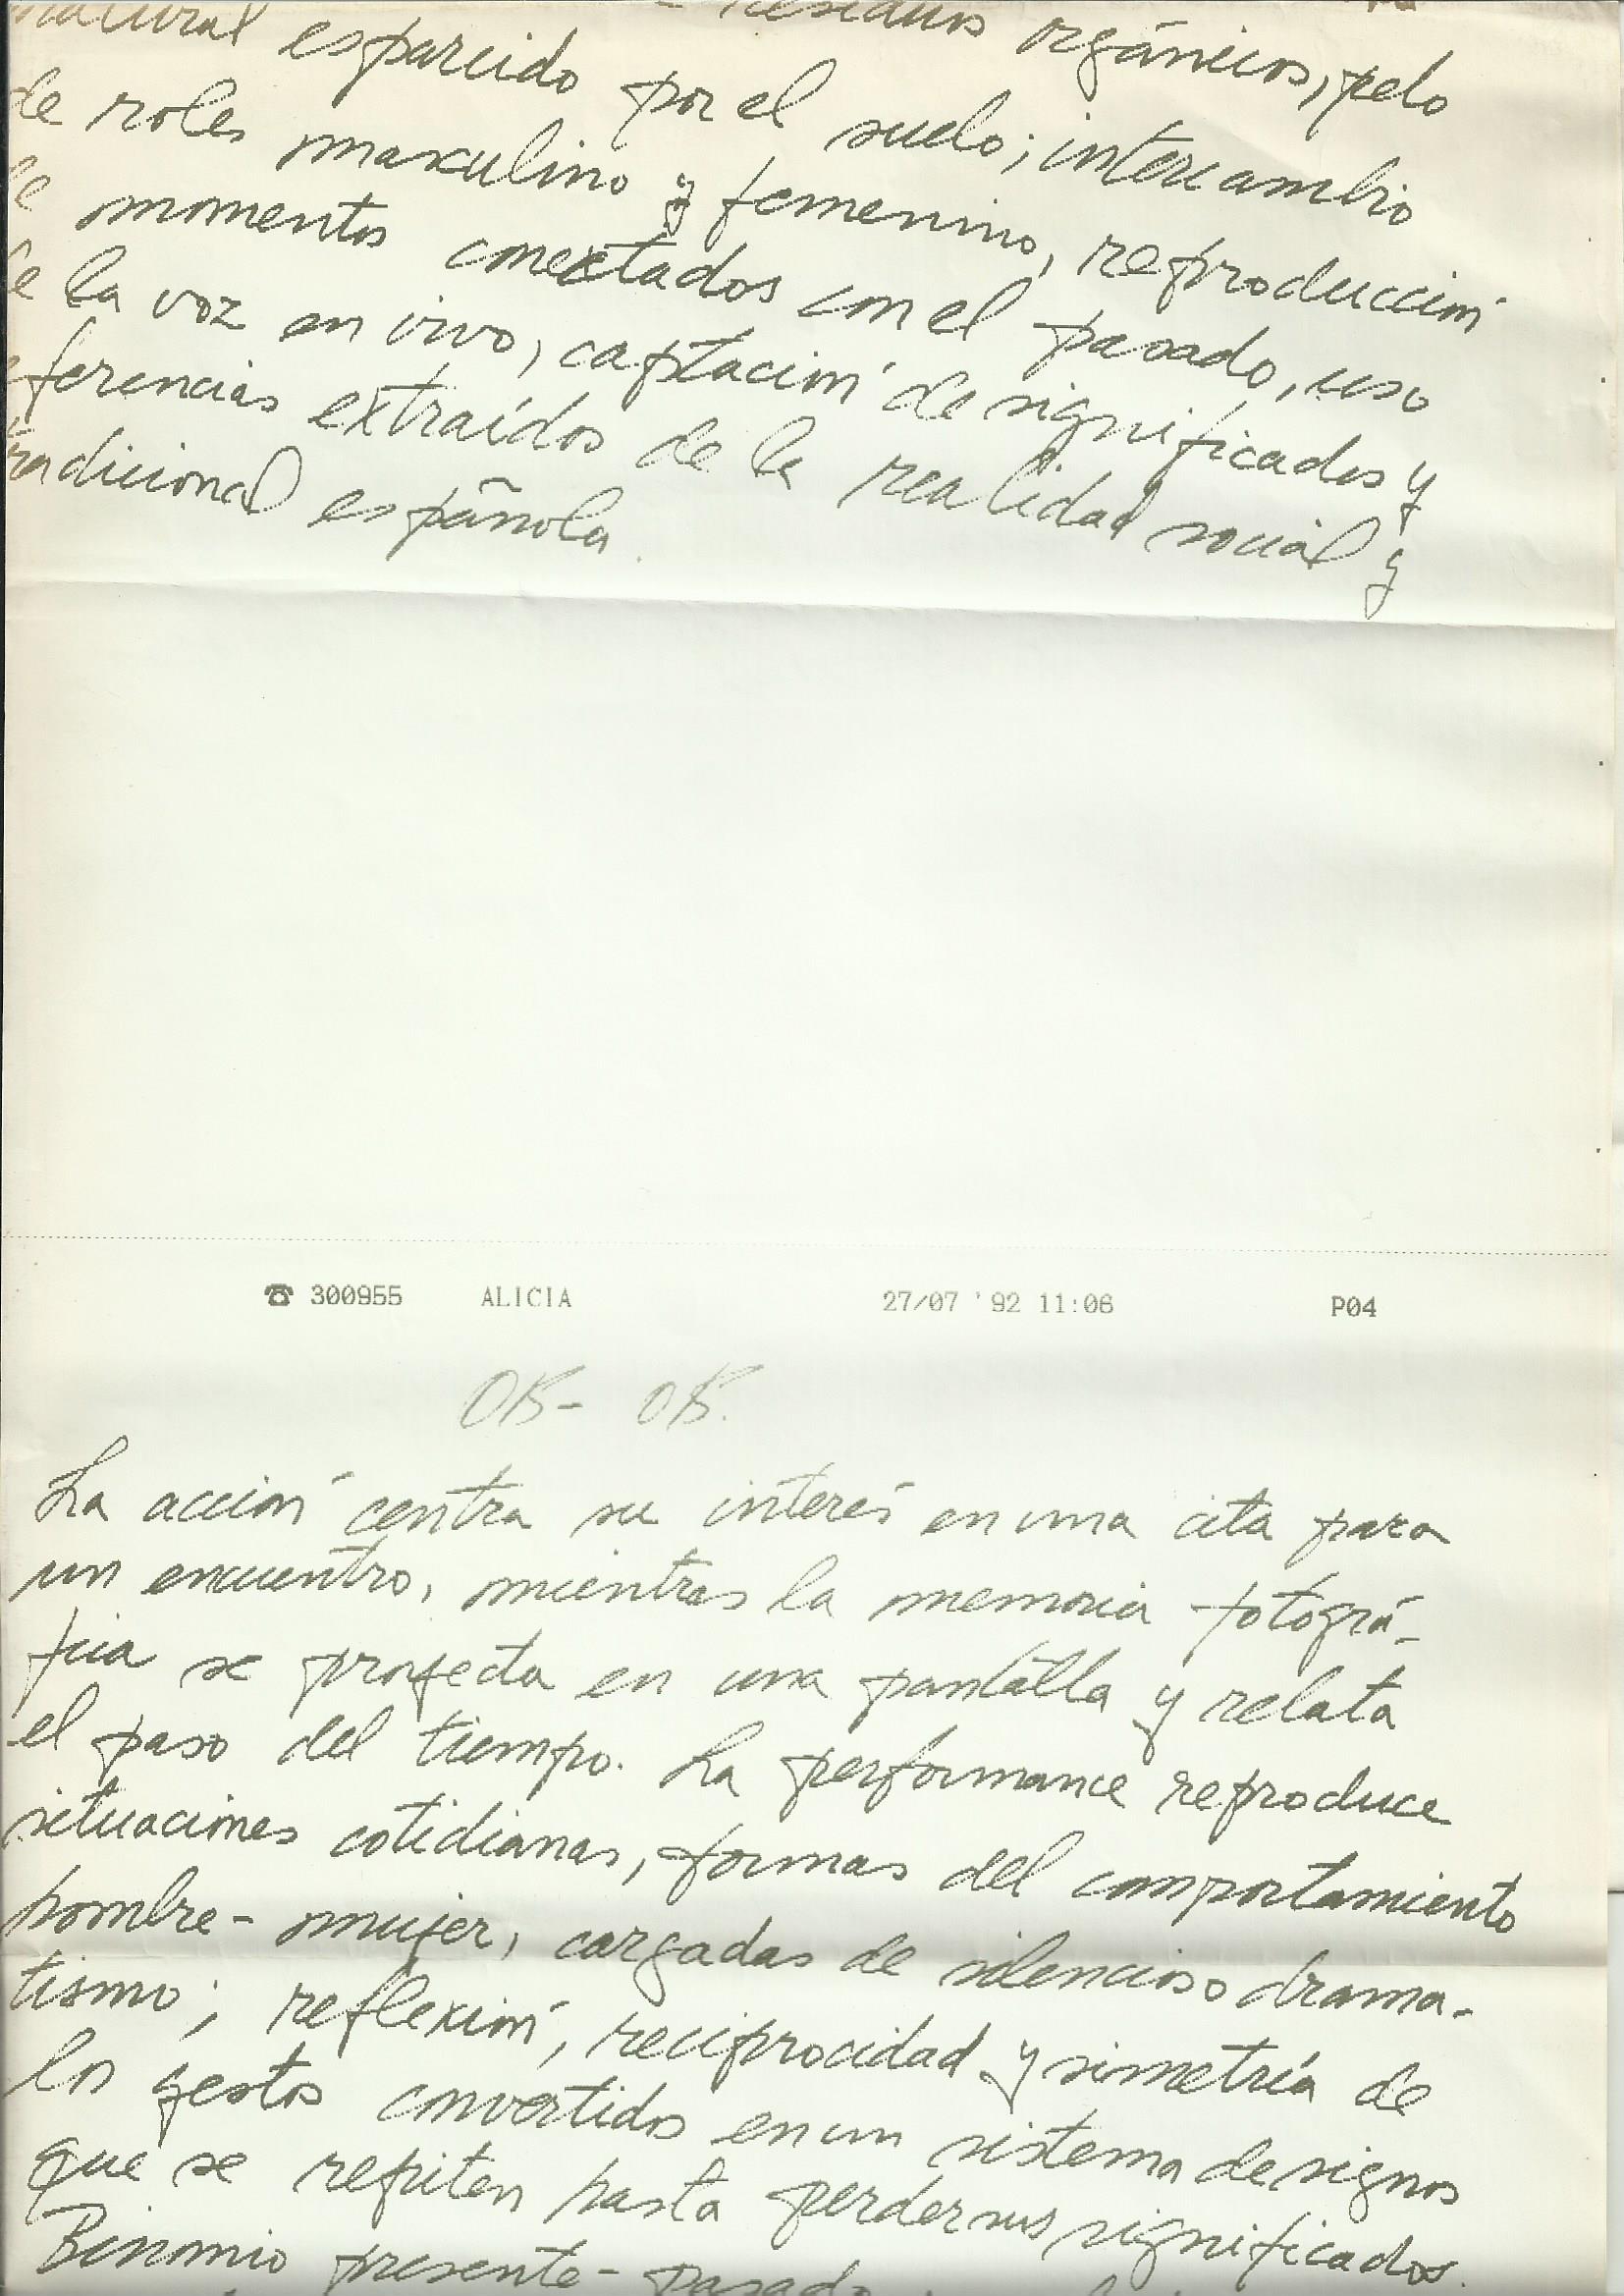 natural esparcido por el suelo; intercambio
residuos orgánicos, pelo
de roles masculino y femenino, reproducción
de momentos conectados con el pasado, uso
de la voz en vivo, captación de significados y
ferencias extraídos de la realidad social y
radicional española.
☎ 300955 ALICIA 27/07 '92 11:06 P04
La acción centra su interés en una cita para
un encuentro, mientras la memoria fotográ-
fica se proyecta en una pantalla y relata
el paso del tiempo. La performance reproduce
situaciones cotidianas, formas del comportamiento
hombre-mujer, cargadas de silencioso drama-
tismo; reflexión, reciprocidad y simetría de
los gestos convertidos en un sistema de signos
que se repiten hasta perder sus significados.
Binomio presente-pasado